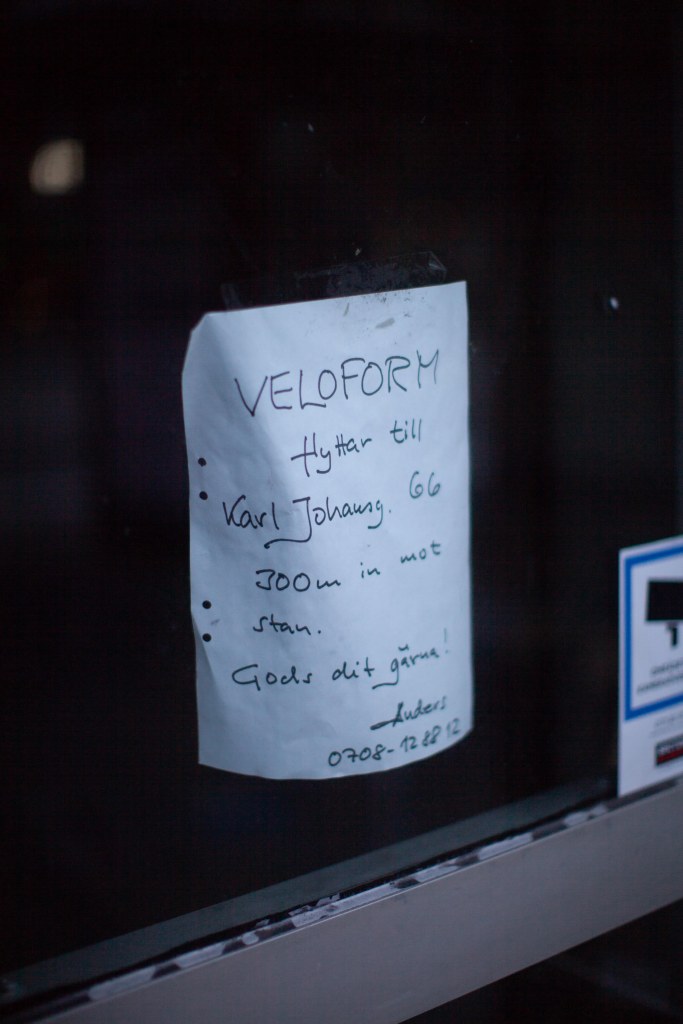 VELOFORM
flyttar till
Karl Johansg. 66
300m in mot
stan.
Gods dit gärna!
Anders
0708-12 88 12